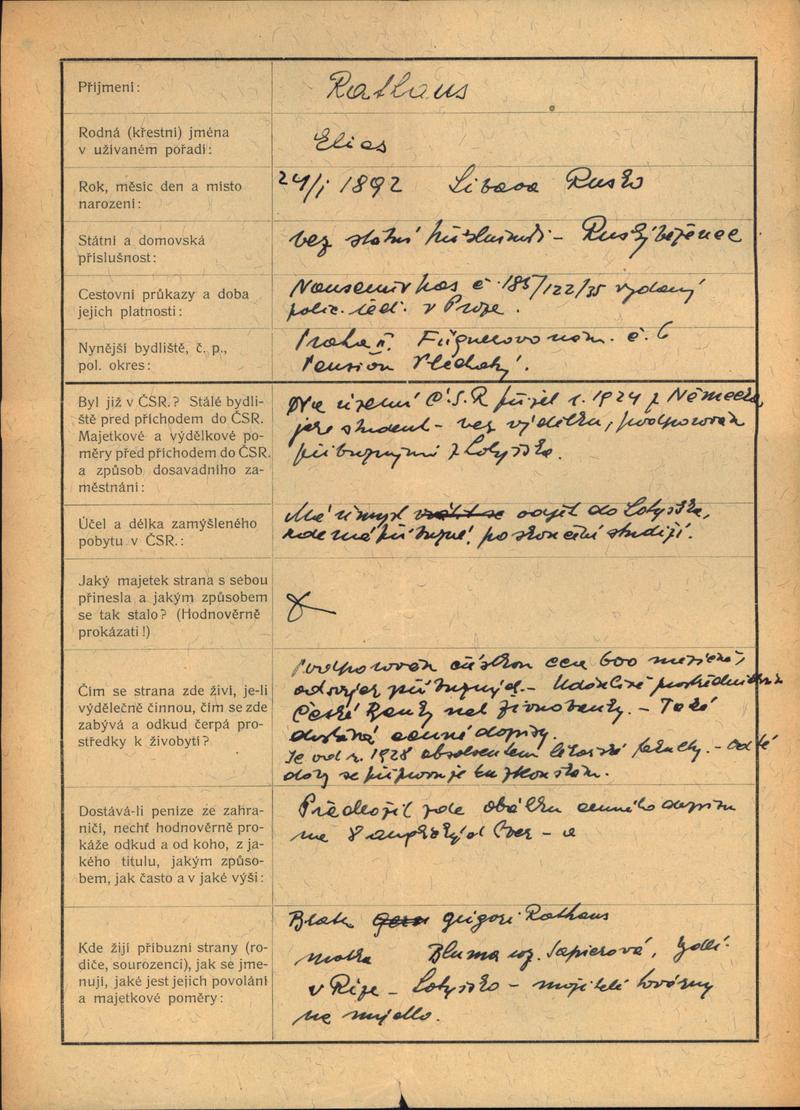 Příjmení:
Rathaus
Rodná (křestní) jména
v užívaném pořadí:
Elias
Rok, měsíc den a místo
narození:
24/I 1892 Libava Rusko
Státní a domovská
příslušnost:
bez státní příslušnosti - Ruský běženec
Cestovní průkazy a doba
jejich platnosti:
Nansenův pas č 185/122/35 vydaný
polic. řed. v Praze.
Nynější bydliště, č. p.,
pol. okres:
Praha II. Fügnerovo nám. č. 6
Pension Všechatý.
Byl již v ČSR.? Stálé bydli-
ště před příchodem do ČSR.
Majetkové a výdělkové po-
měry před příchodem do ČSR.
a způsob dosavadního za-
městnání:
Na území Č.S.R přijel r. 1924 z Německa,
jako student - bez výdělku, podporován
příbuznými z Lotyšska.
Účel a délka zamýšleného
pobytu v ČSR.:
Má úmysl vrátit se odjet do Lotyšska,
kde má příbuzné, po skončení studijí.
Jaký majetek strana s sebou
přinesla a jakým způsobem
se tak stalo? (Hodnověrně
prokázati!)
Čím se strana zde živí, je-li
výdělečně činnou, čím se zde
zabývá a odkud čerpá pro-
středky k živobytí?
Podporován částkou cca 600 měsíčně,
od svých příbuzných. - Udánlivě prostřednictvím
České Banky neb Živnobanky. - Také
dostává cenné dopisy.
Je od r. 1928 absolventem lékařské fakulty. - Od té
doby se připravuje ku zkouškám.
Dostává-li peníze ze zahra-
ničí, nechť hodnověrně pro-
káže odkud a od koho, z ja-
kého titulu, jakým způso-
bem, jak často a v jaké výši:
Předložil zde obálku cenného dopisu
na 8 anglických liber - a
Kde žijí příbuzní strany (ro-
diče, sourozenci), jak se jme-
nují, jaké jest jejich povolání
a majetkové poměry:
Bratr Grigori Rathaus
matka Bluma roz. Sapierová, bydlí
v Rize - Lotyšsko - majitelé továrny
na mýdlo.